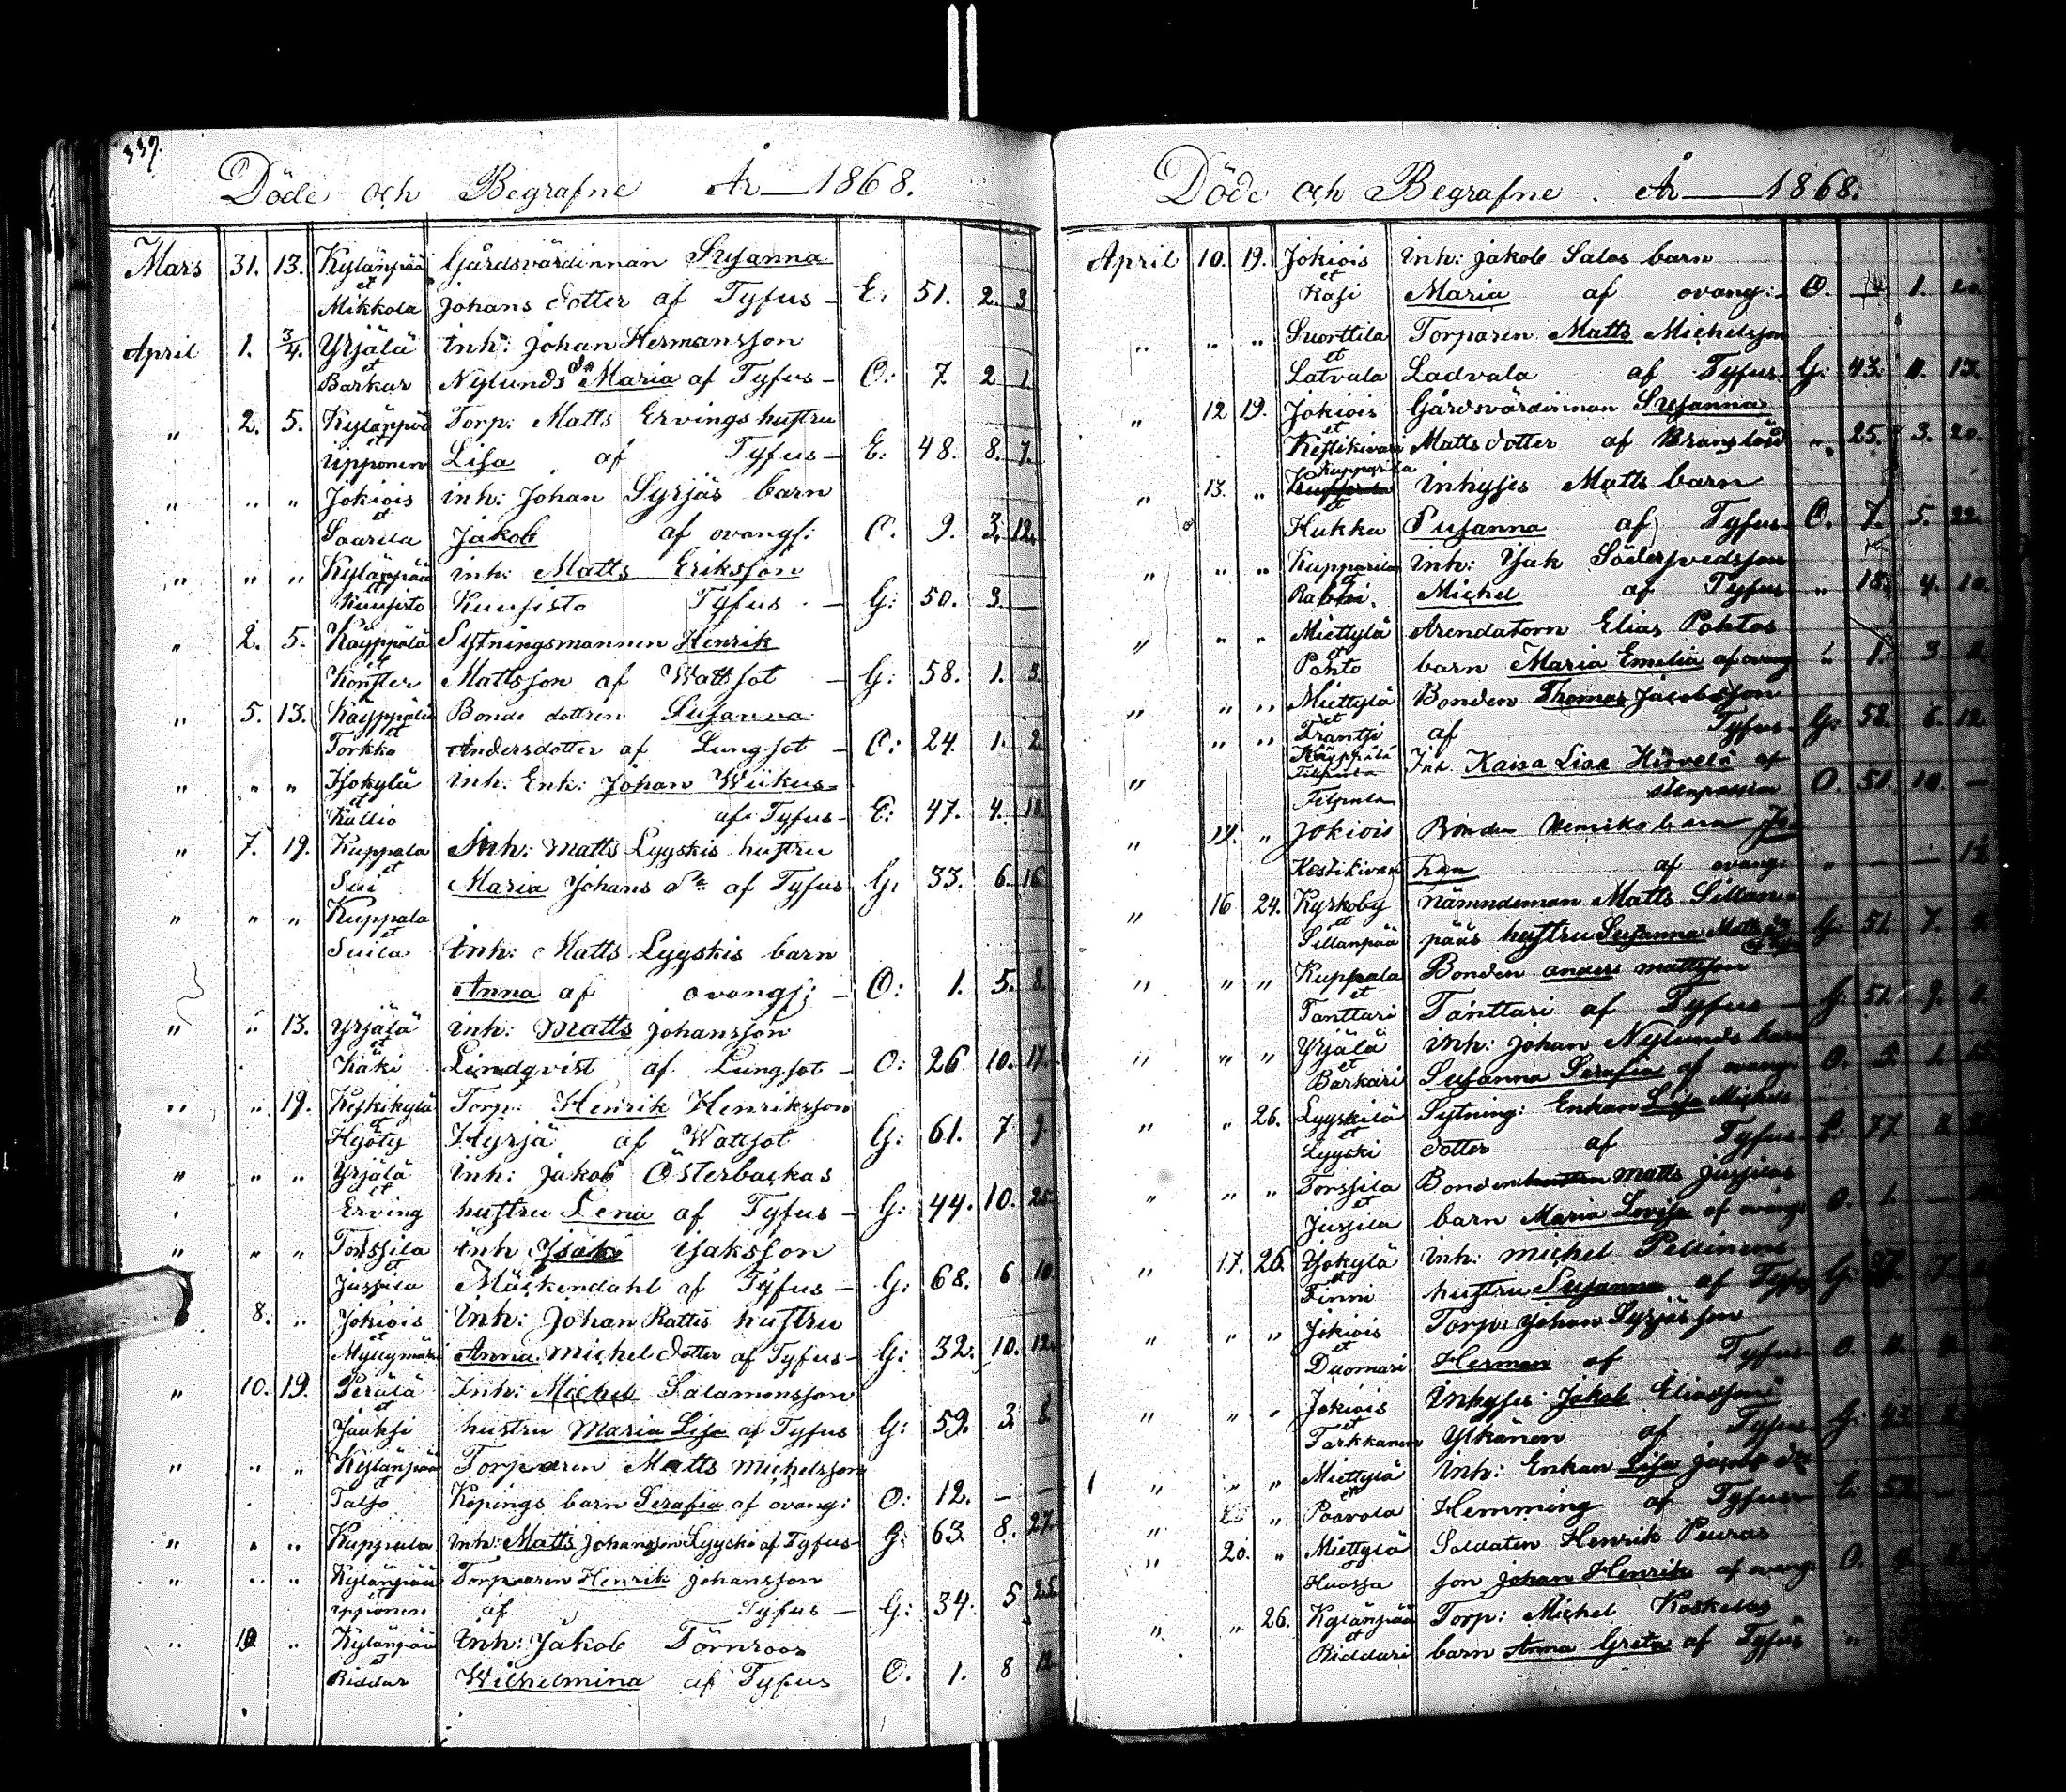 339.
Döde och Begrafne År 1868.
Mars 31. 13. Kylänpää Gårdsvärdinnan Susanna
et Mikkola Johans dotter af Tyfus - E. 51. 2. 3
April 1. 3/4. Yrjälä Inh: Johan Hermansson
et Barkar Nylunds dr Maria af Tyfus - O: 7. 2 1.
" 2. 5. Kylänpää Torp: Matts Ervings hustru
et Upponen Lisa af Tyfus - E: 48. 8. 7.
" " " Jokiois inh: Johan Syrjäs barn
et Saarila Jakob af ovangs: O. 9. 3. 12.
" " " Kylänpää inh: Matts Eriksson
et Kuusisto Kuusisto Tyfus - G: 50. 3. —
" 2. 5. Käyppälä Sytningsmannen Henrik
et Könster Mattsson af Wattsot - G: 58. 1. 3.
" 5. 13. Käyppälä Bonde dottren Susanna
et Torkko Andersdotter af Lungsot - O: 24. 1. 2
" " " Isokylä inh: Enk: Johan Wiikus
et Kallio af Tyfus - E: 47. 4. 18.
" 7. 19. Kuppala Inh: Matts Lyyskis hustru
et Sui Maria Johans dr af Tyfus G. 33. 6. 16
" " " Kuppala
et Suila Inh: Matts Lyyskis barn
Anna af ovangs; - O: 1. 5. 8.
" " 13. Yrjälä inh: Matts Johansson
et Käki Lindqvist af Lungsot - O: 26 10. 17.
" " 19. Keskikylä Torp: Henrik Henriksson
et Hyöty Hyrjä af Wattsot G: 61. 7 9
" " " Yrjälä inh: Jakob Österbackas
et Erving hustru Lena af Tyfus - G: 44. 10. 25
" " " Torssila Inh Isak Isaksson
et Jussila Mäckendahl af Tyfus - G: 68. 6 10
8. " Jokiois Inh: Johan Rattis hustru
et Myllymäki Anna Michel dotter af Tyfus - G: 32. 10. 12.
" 10. 19. Perälä Inh: Michel Salamonsson
et Jaaksi hustru Maria Lisa af Tyfus G: 59. 3.
" " " Kylänpää Torparen Matts Michelsson
et Talso Köpings barn Serafia af ovang: O: 12. — —
" " " Kuppala Inh: Matts Johansson Lyyski af Tyfus G: 63. 8. 27.
" " " Kylänpää Torparen Henrik Johansson
et Upponen af Tyfus - G: 34. 5 25.
" 10 " Kylänpää Inh: Jakob Törnroos
et Riddar Wilhelmina af Tyfus O. 1. 8 12.
Döde och Begrafne. År 1868.
April 10. 19. Jokiois Inh: Jakob Salos barn
et Kasi Maria af ovang: O. 1. 20.
" " " Suorttila Torparen Matts Michelsson
et Latvala Ladvala af Tyfus G: 43. 11. 13.
" 12 19. Jokiois Gårdsvärdinnan Susanna
et Kestikivari Matts dotter af Branstöd " 25. 3. 20.
" 13. " Kupparila Inhyses Matts barn
et Kukku Susanna af Tyfus O. 7. 5. 22.
" " " Kupparila inh: Isak Södersvedsson
et Rabbi. Michel af Tyfus " 18. 4. 10.
" " " Miettylä Arendatorn Elias Pahtos
et Pahto barn Maria Emelia af ovang " 1. 3
" " " Miettylä Bonden Thomas Jacobsson
" " " et Frantsi af Tyfus G: 58. 6. 12
" Käyppälä Inh. Kaisa Lisa Hirvelä af
Filpula O. 51. 10. —
" 14. " Jokiois Bonden Henriks barn Jo
Kestikivari han af ovang: " — —
" 16 24. Kyrkoby nämndeman Matts Sillan
et Sillanpää pääs hustru Susanna Matts dr G: 51. 7.
" " " Kuppala Bonden anders mattsson
et Tanttari Tanttari af Tyfus G. 51. 9.
" " " Yrjälä Inh: Johan Nylunds barn
et Barkari Susanna Serafia af ovang: O. 5. 1.
" " 26. Lyyskilä Sytning: Enkan Lisa Michels
et Lyyski dotter af Tyfus E: 77 8
" " " Torssila Bonden Matts Jussilas
et Jussila barn Maria Lovisa af ovang: O. 1. —
" 17. 26. Isokylä Inh: Michel Pellinens
et Finni hustru Susanna af Tyfus G:
" " " Jokiois Torp: Johan Syrjäs son
et Duomari Herman af Tyfus O.
" " " Jokiois Inhyses Jakob Eliasson
et Tarkkanen Ylkänen af Tyfus G: 43
" " " Miettylä Inh: Enkan Lisa Jacobs dr
" " et Paavola Hemming af Tyfus E: 52
" 20. " Miettylä Soldaten Henrik Peuras
et Huossa son Johan Henrik af ovang: O.
" " 26. Kylänpää Torp: Michel Koskelas
et Riddari barn Anna Greta af Tyfus "